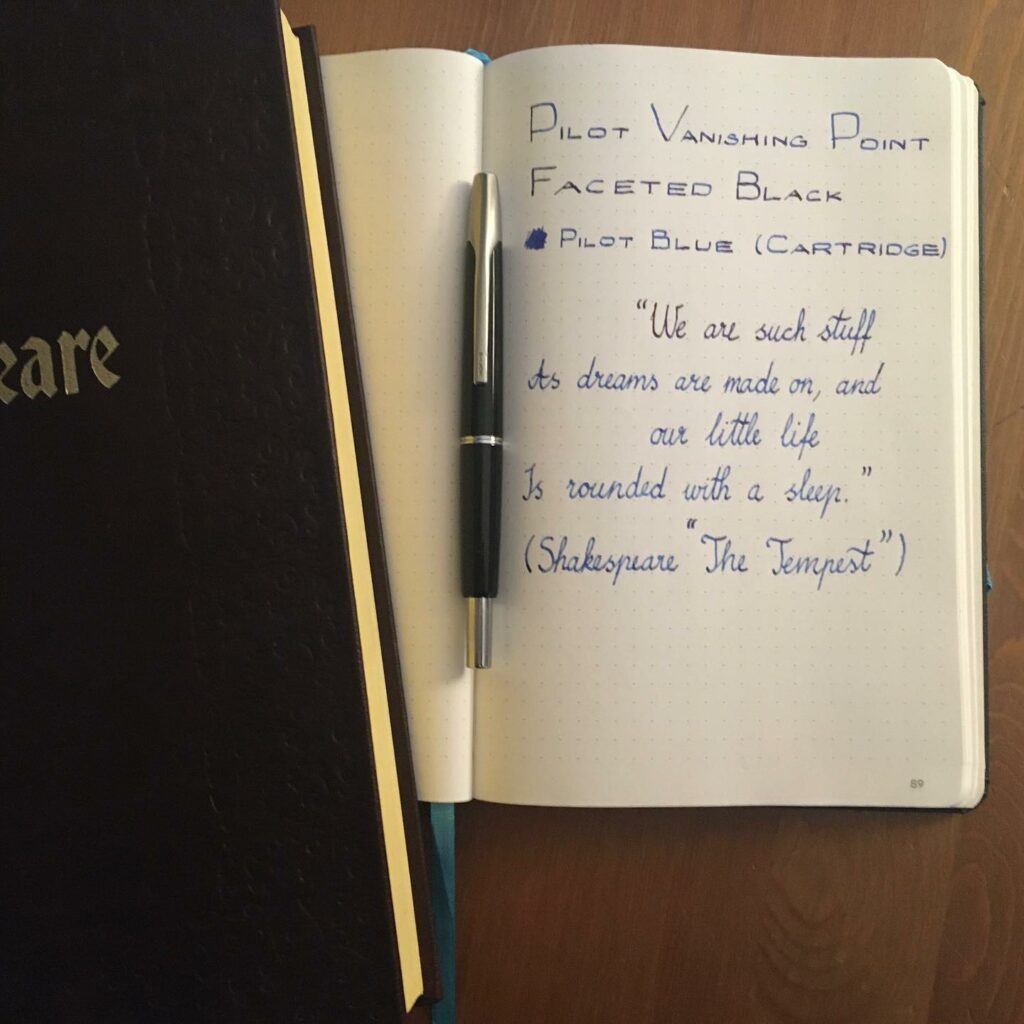 eare
Pilot Vanishing Point
Faceted Black
Pilot Blue (Cartridge)
"We are such stuff
As dreams are made on, and
our little life
Is rounded with a sleep."
(Shakespeare "The Tempest")
89